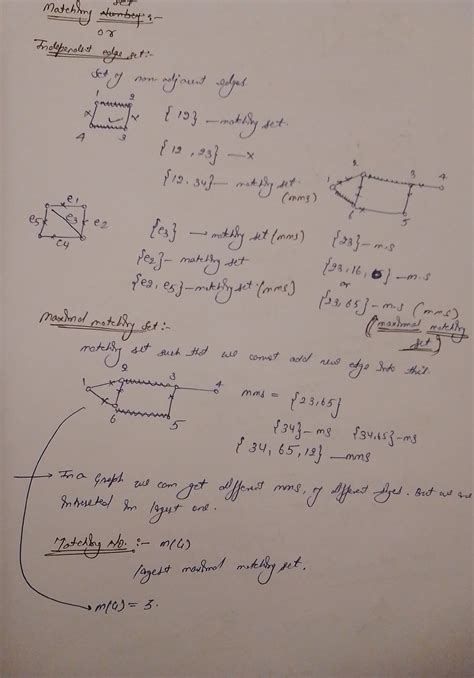 Matching set :-
or
Independent edge set:-
Set of non-adjacent edges.
1 2
4 3
{12} — matching set.
{12, 23} — x
{12, 34} — matching set (mms)
1 2 3 4
6 5
e1
e5 e3 e2
e4
{e3} → matching set (mms)
{e2} — matching set
{e2, e5} — matching set (mms)
{23} — m.s
{23, 16, } — m.s
or
{23, 65} — m.s (mms)
(maximal matching set)
Maximal matching set:-
matching set such that we cannot add new edge into this.
1 2 3 4
6 5
mms = {23,65}
{34} — ms {34,65} — ms
{34, 65, 12} — mms
→ In a Graph we can get different mms, of different sizes. But we are
intrested in largest one.
Matching No. :- m(G)
largest maximal matching set.
m(G) = 3.